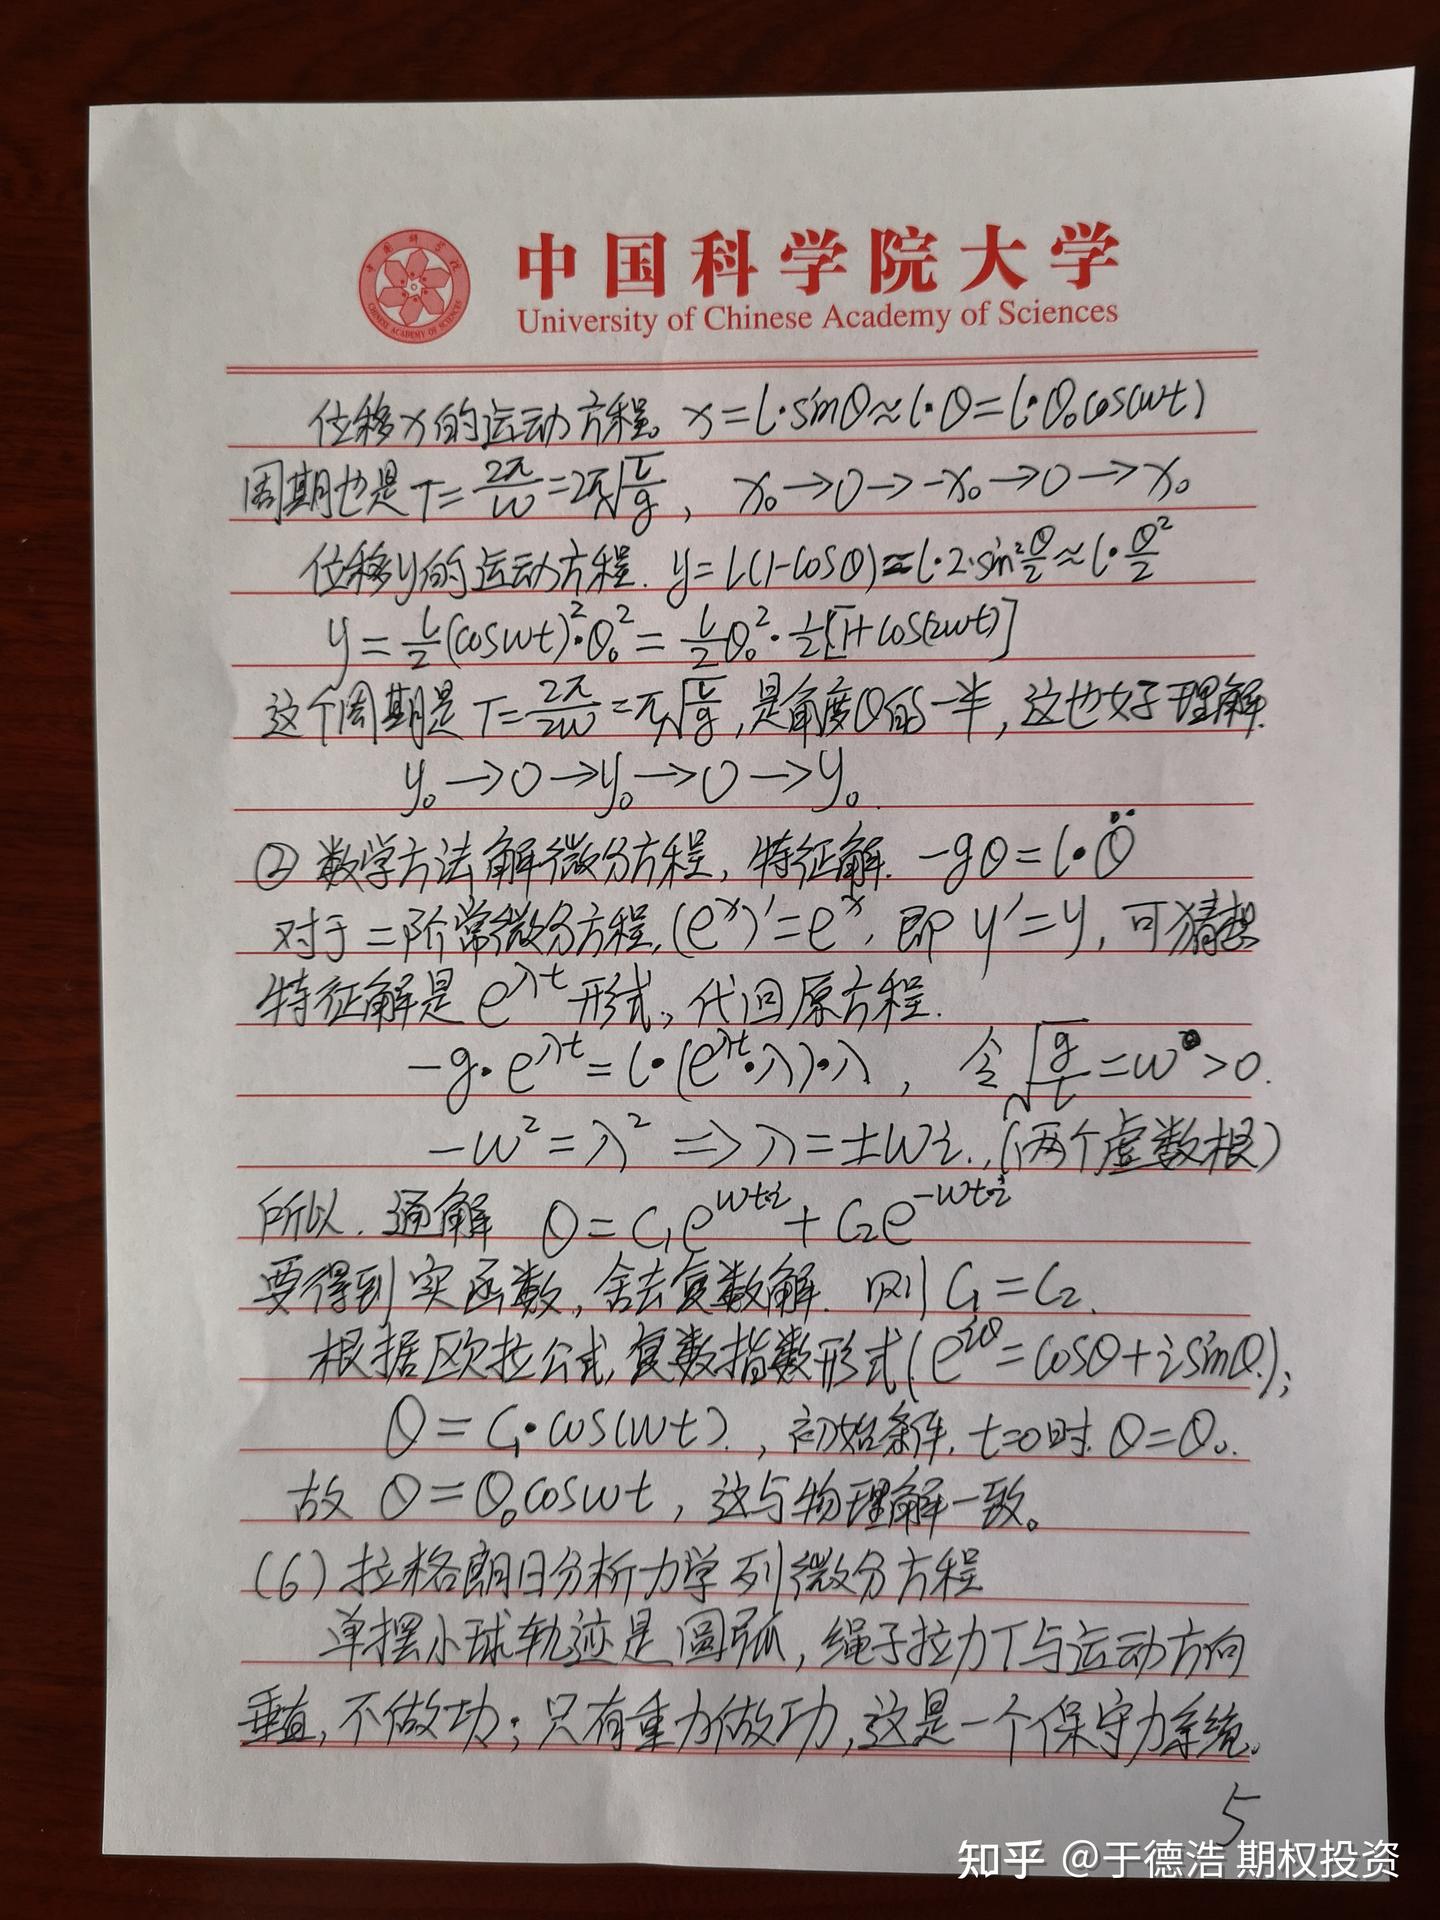 中国科学院大学
University of Chinese Academy of Sciences
位移x的运动方程。x=l·sinθ≈l·θ=l·θ₀cos(ωt)
周期也是T=2π/ω=2π√(l/g)，x₀→0→-x₀→0→x₀
位移y的运动方程. y=l(1-cosθ)=l·2·sin²θ/2≈l·θ²/2
y=l/2(cosωt)²·θ₀²=l/2θ₀²·1/2[1+cos(2ωt)]
这个周期是T=2π/2ω=π√(l/g),是角度θ的一半,这也好理解.
y₀→0→y₀→0→y₀.
②数学方法解微分方程,特征解. -gθ=l·θ̈
对于二阶常微分方程,(eˣ)'=eˣ,即y'=y,可猜想
特征解是e^λt形式,代回原方程.
-g·e^λt=l·(e^λt·λ)·λ, 令√(g/l)=ω>0.
-ω²=λ² => λ=±ωi.,(两个虚数根)
所以.通解 θ=C₁e^ωt·i+C₂e^-ωt·i
要得到实函数,舍去复数解. 则C₁=C₂.
根据欧拉公式,复数指数形式(e^iθ=cosθ+isinθ.);
θ=C₁·cos(ωt).,初始条件. t=0时. θ=θ₀.
故 θ=θ₀cosωt,这与物理解一致。
(6)拉格朗日分析力学列微分方程
单摆小球轨迹是圆弧,绳子拉力T与运动方向
垂直,不做功;只有重力做功,这是一个保守力系统。
5
知乎 @于德浩 期权投资